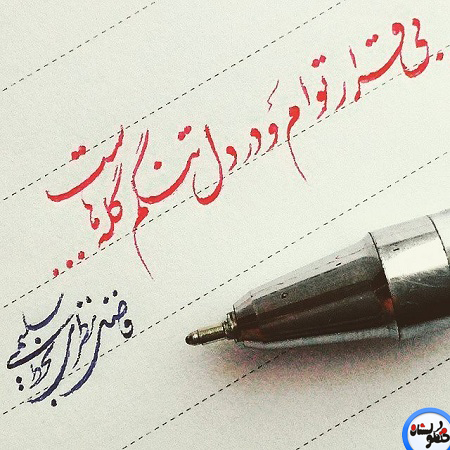 بی قرار توام و در دل تنگم گله هاست...
فاضل نظری
بخط سلیمی